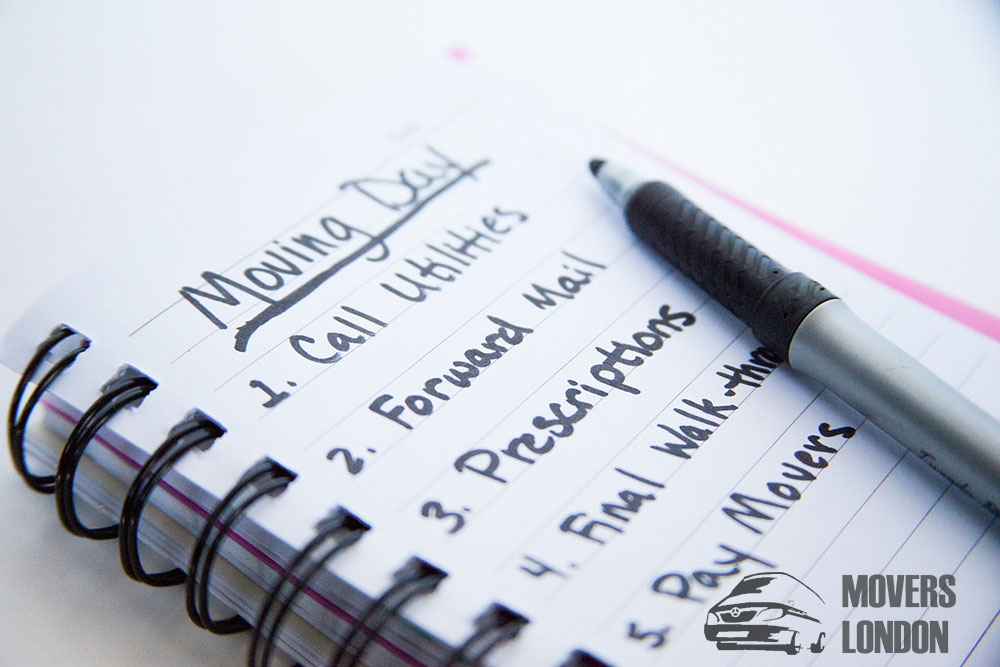 Moving Day
1. Call Utilities
2. Forward Mail
3. Prescriptions
4. Final Walk-thro
5. Pay Movers
MOVERS
LONDON